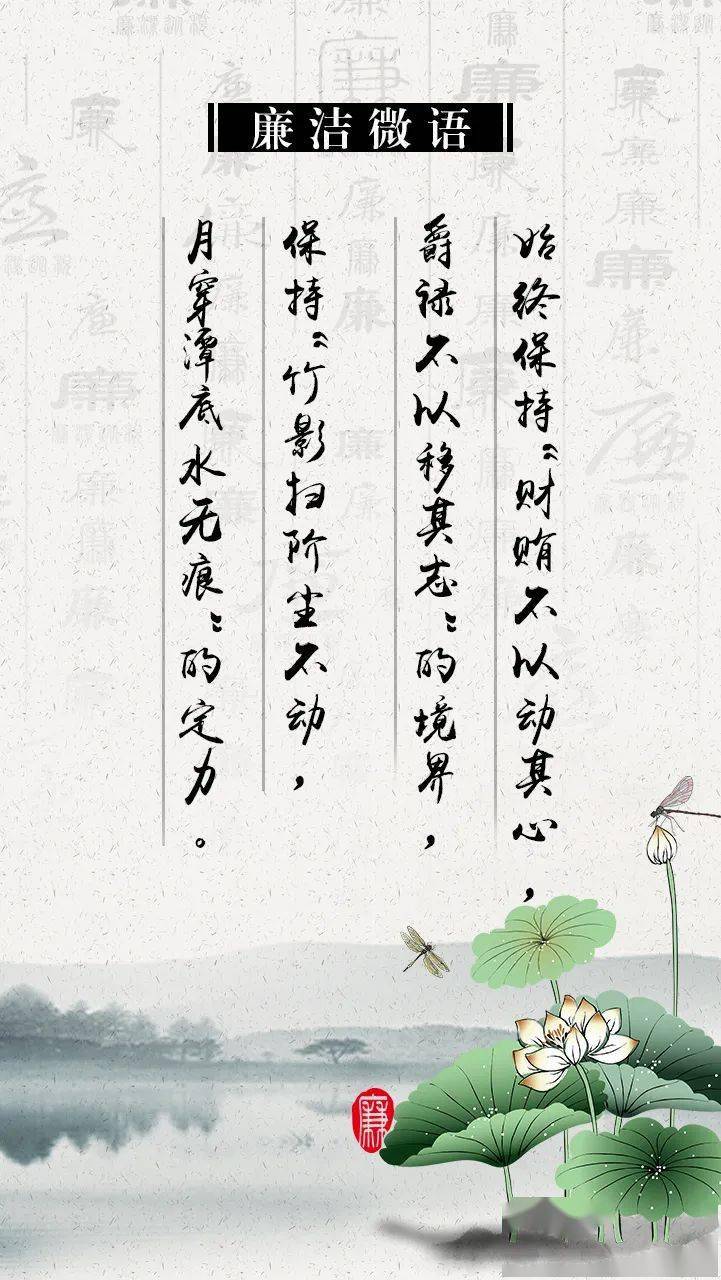 廉洁微语
始终保持“财贿不以动其心，
爵禄不以移其志”的境界，
保持“竹影扫阶尘不动，
月穿潭底水无痕”的定力。
廉